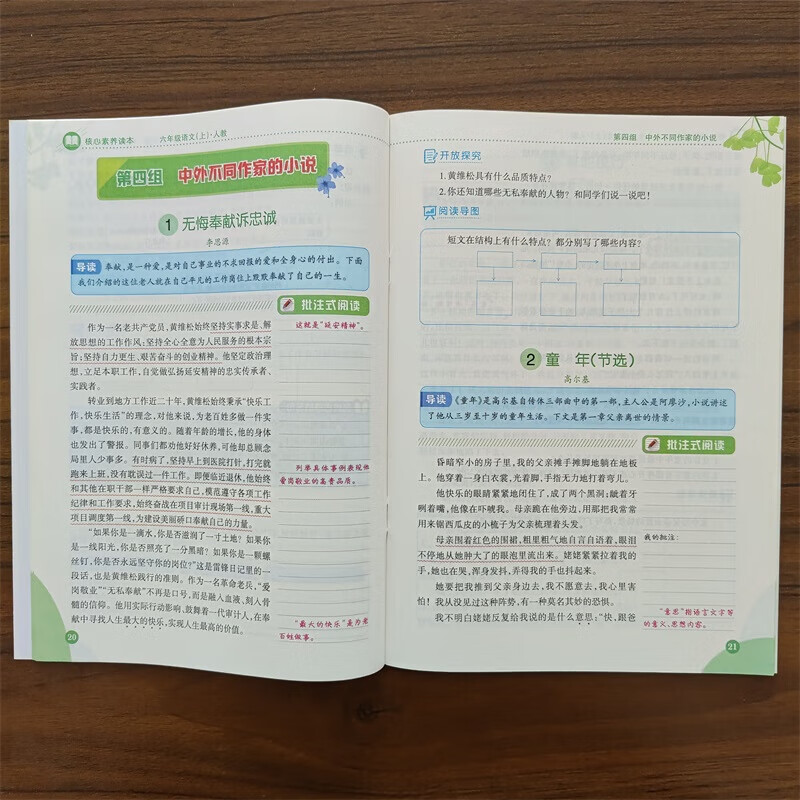 核心素养读本 六年级语文(上)·人教
第四组 中外不同作家的小说
1 无悔奉献诉忠诚
李思源
导读 奉献,是一种爱,是对自己事业的不求回报的爱和全身心的付出。下面
我们介绍的这位老人就在自己平凡的工作岗位上默默奉献了自己的一生。
批注式阅读
作为一名老共产党员,黄维松始终坚持实事求是、解
放思想的工作作风;坚持全心全意为人民服务的根本宗
旨;坚持自力更生、艰苦奋斗的创业精神。他坚定政治理
想,立足本职工作,自觉做弘扬延安精神的忠实传承者、
实践者。
这就是“延安精神”。
转业到地方工作近二十年,黄维松始终秉承“快乐工
作,快乐生活”的理念,对他来说,为老百姓多做一件实
事,都是快乐的,有意义的。随着年龄的增长,他的身体
也发出了警报。同事们都劝他好好休养,可他却总顾念
局里人少事多。有时病了,坚持早上到医院打针,打完就
跑来上班,没有耽误过一件工作。即便临近退休,他始终
和其他在职干部一样严格要求自己,模范遵守各项工作
纪律和工作要求,始终奋战在项目审计现场第一线,重大
项目调度第一线,为建设美丽硚口奉献自己的力量。
列举具体事例表现他
爱岗敬业的高贵品质。
“如果你是一滴水,你是否滋润了一寸土地?如果你
是一线阳光,你是否照亮了一分黑暗?如果你是一颗螺
丝钉,你是否永远坚守你的岗位?”这是雷锋日记里的一
段话,也是黄维松践行的准则。作为一名革命老兵,“爱
岗敬业”“无私奉献”不再是口号,而是融入血液、刻入骨
髓的信仰。他用实际行动影响、鼓舞着一代审计人,在奉
献中寻找人生最大的快乐,实现人生最高的价值。
“最大的快乐”是为老
百姓做事。
20
第四组 中外不同作家的小说
开放探究
1.黄维松具有什么品质特点?
2.你还知道哪些无私奉献的人物?和同学们说一说吧!
阅读导图
短文在结构上有什么特点?都分别写了哪些内容?
2 童 年(节选)
高尔基
导读 《童年》是高尔基自传体三部曲中的第一部,主人公是阿廖沙,小说讲述
了他从三岁至十岁的童年生活。下文是第一章父亲离世的情景。
批注式阅读
昏暗窄小的房子里,我的父亲摊手摊脚地躺在地板
上。他穿着一身白衣裳,光着脚,手指无力地打着弯儿。
他快乐的眼睛紧紧地闭住了,成了两个黑洞;龇着牙
咧着嘴,他像在吓唬我。母亲跪在他旁边,用那把我常常
用来锯西瓜皮的小梳子为父亲梳理着头发。
母亲围着红色的围裙,粗里粗气地自言自语着,眼泪
不停地从她肿大了的眼泡里流出来。姥姥紧紧拉着我的
手,她也在哭,浑身发抖,弄得我的手也抖起来。
我的批注:
她要把我推到父亲身边去,我不愿意去,我心里害
怕!我从没见过这种阵势,有一种莫名其妙的恐惧。
我不明白姥姥反复给我说的是什么意思:“快,跟爸
“意思”指语言文字等
的意义、思想内容。
21